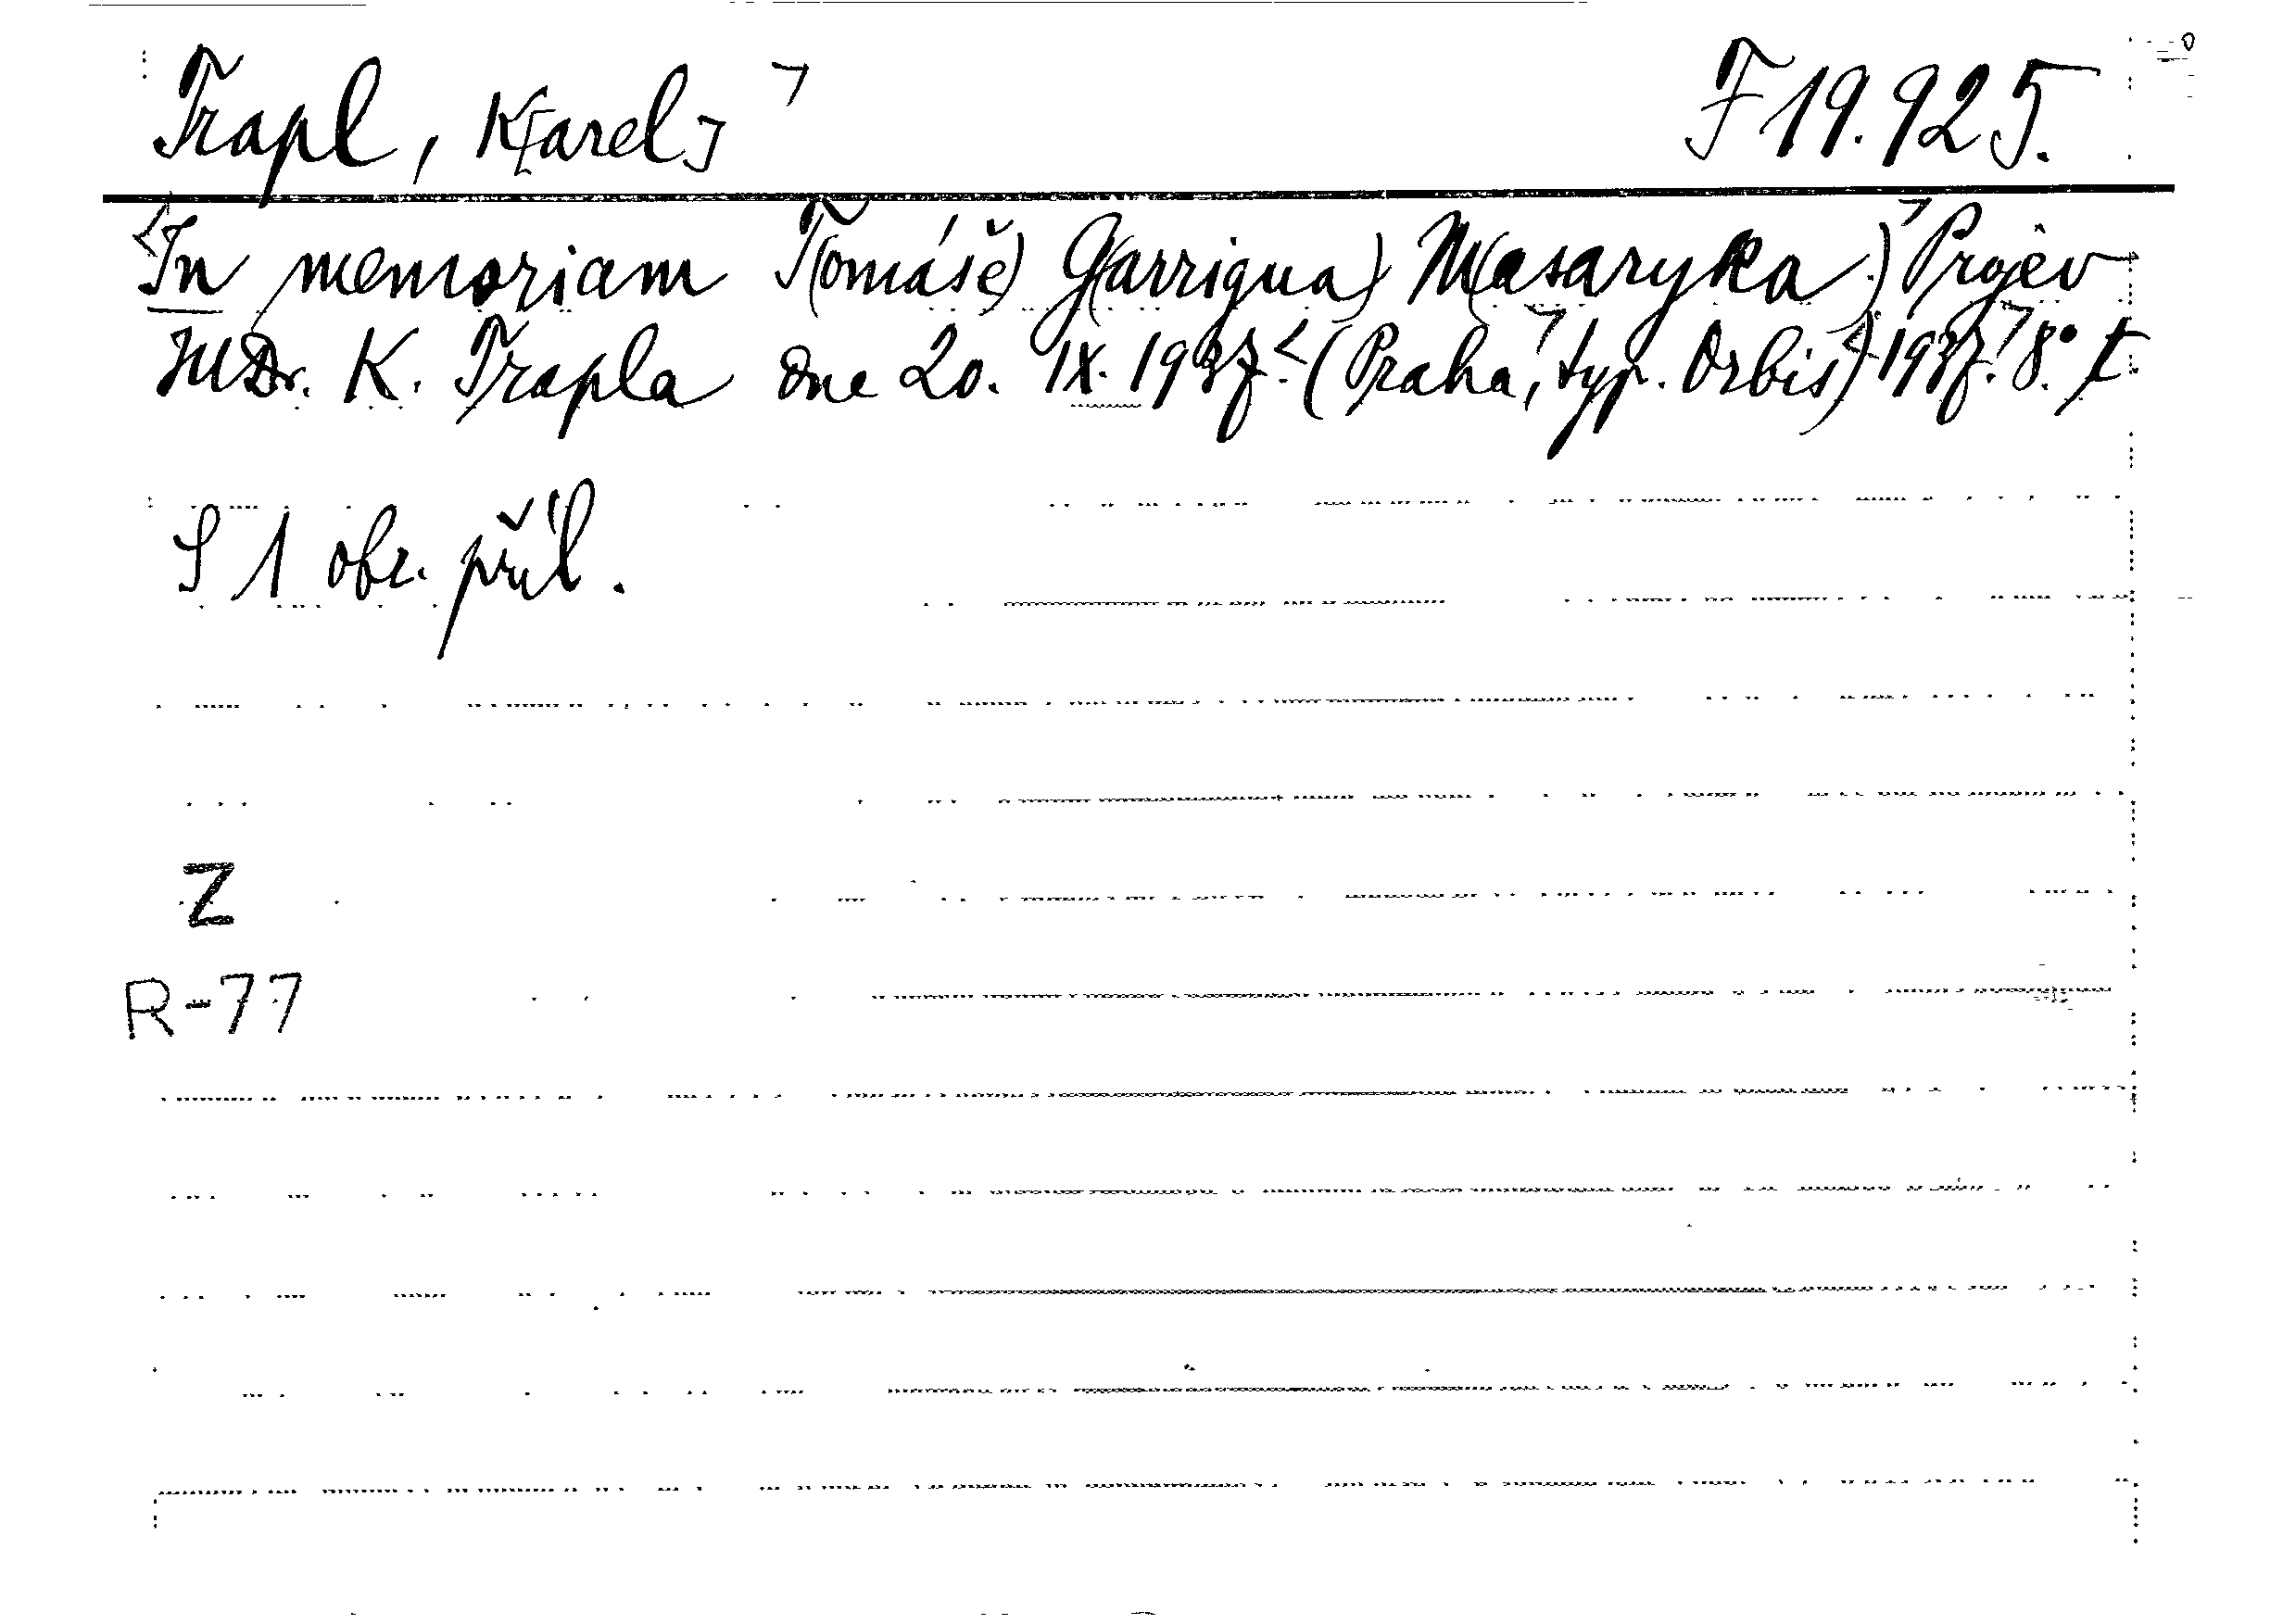 Trapl, K[arel] F 19.925.
In memoriam T(omáše) G(arrigua) M(asaryka.) Projev
MDr. K. Trapla dne 20. IX. 1937. (Praha, typ. Orbis) 1937. 8.° t
S 1 obr. příl.
Z
R-77